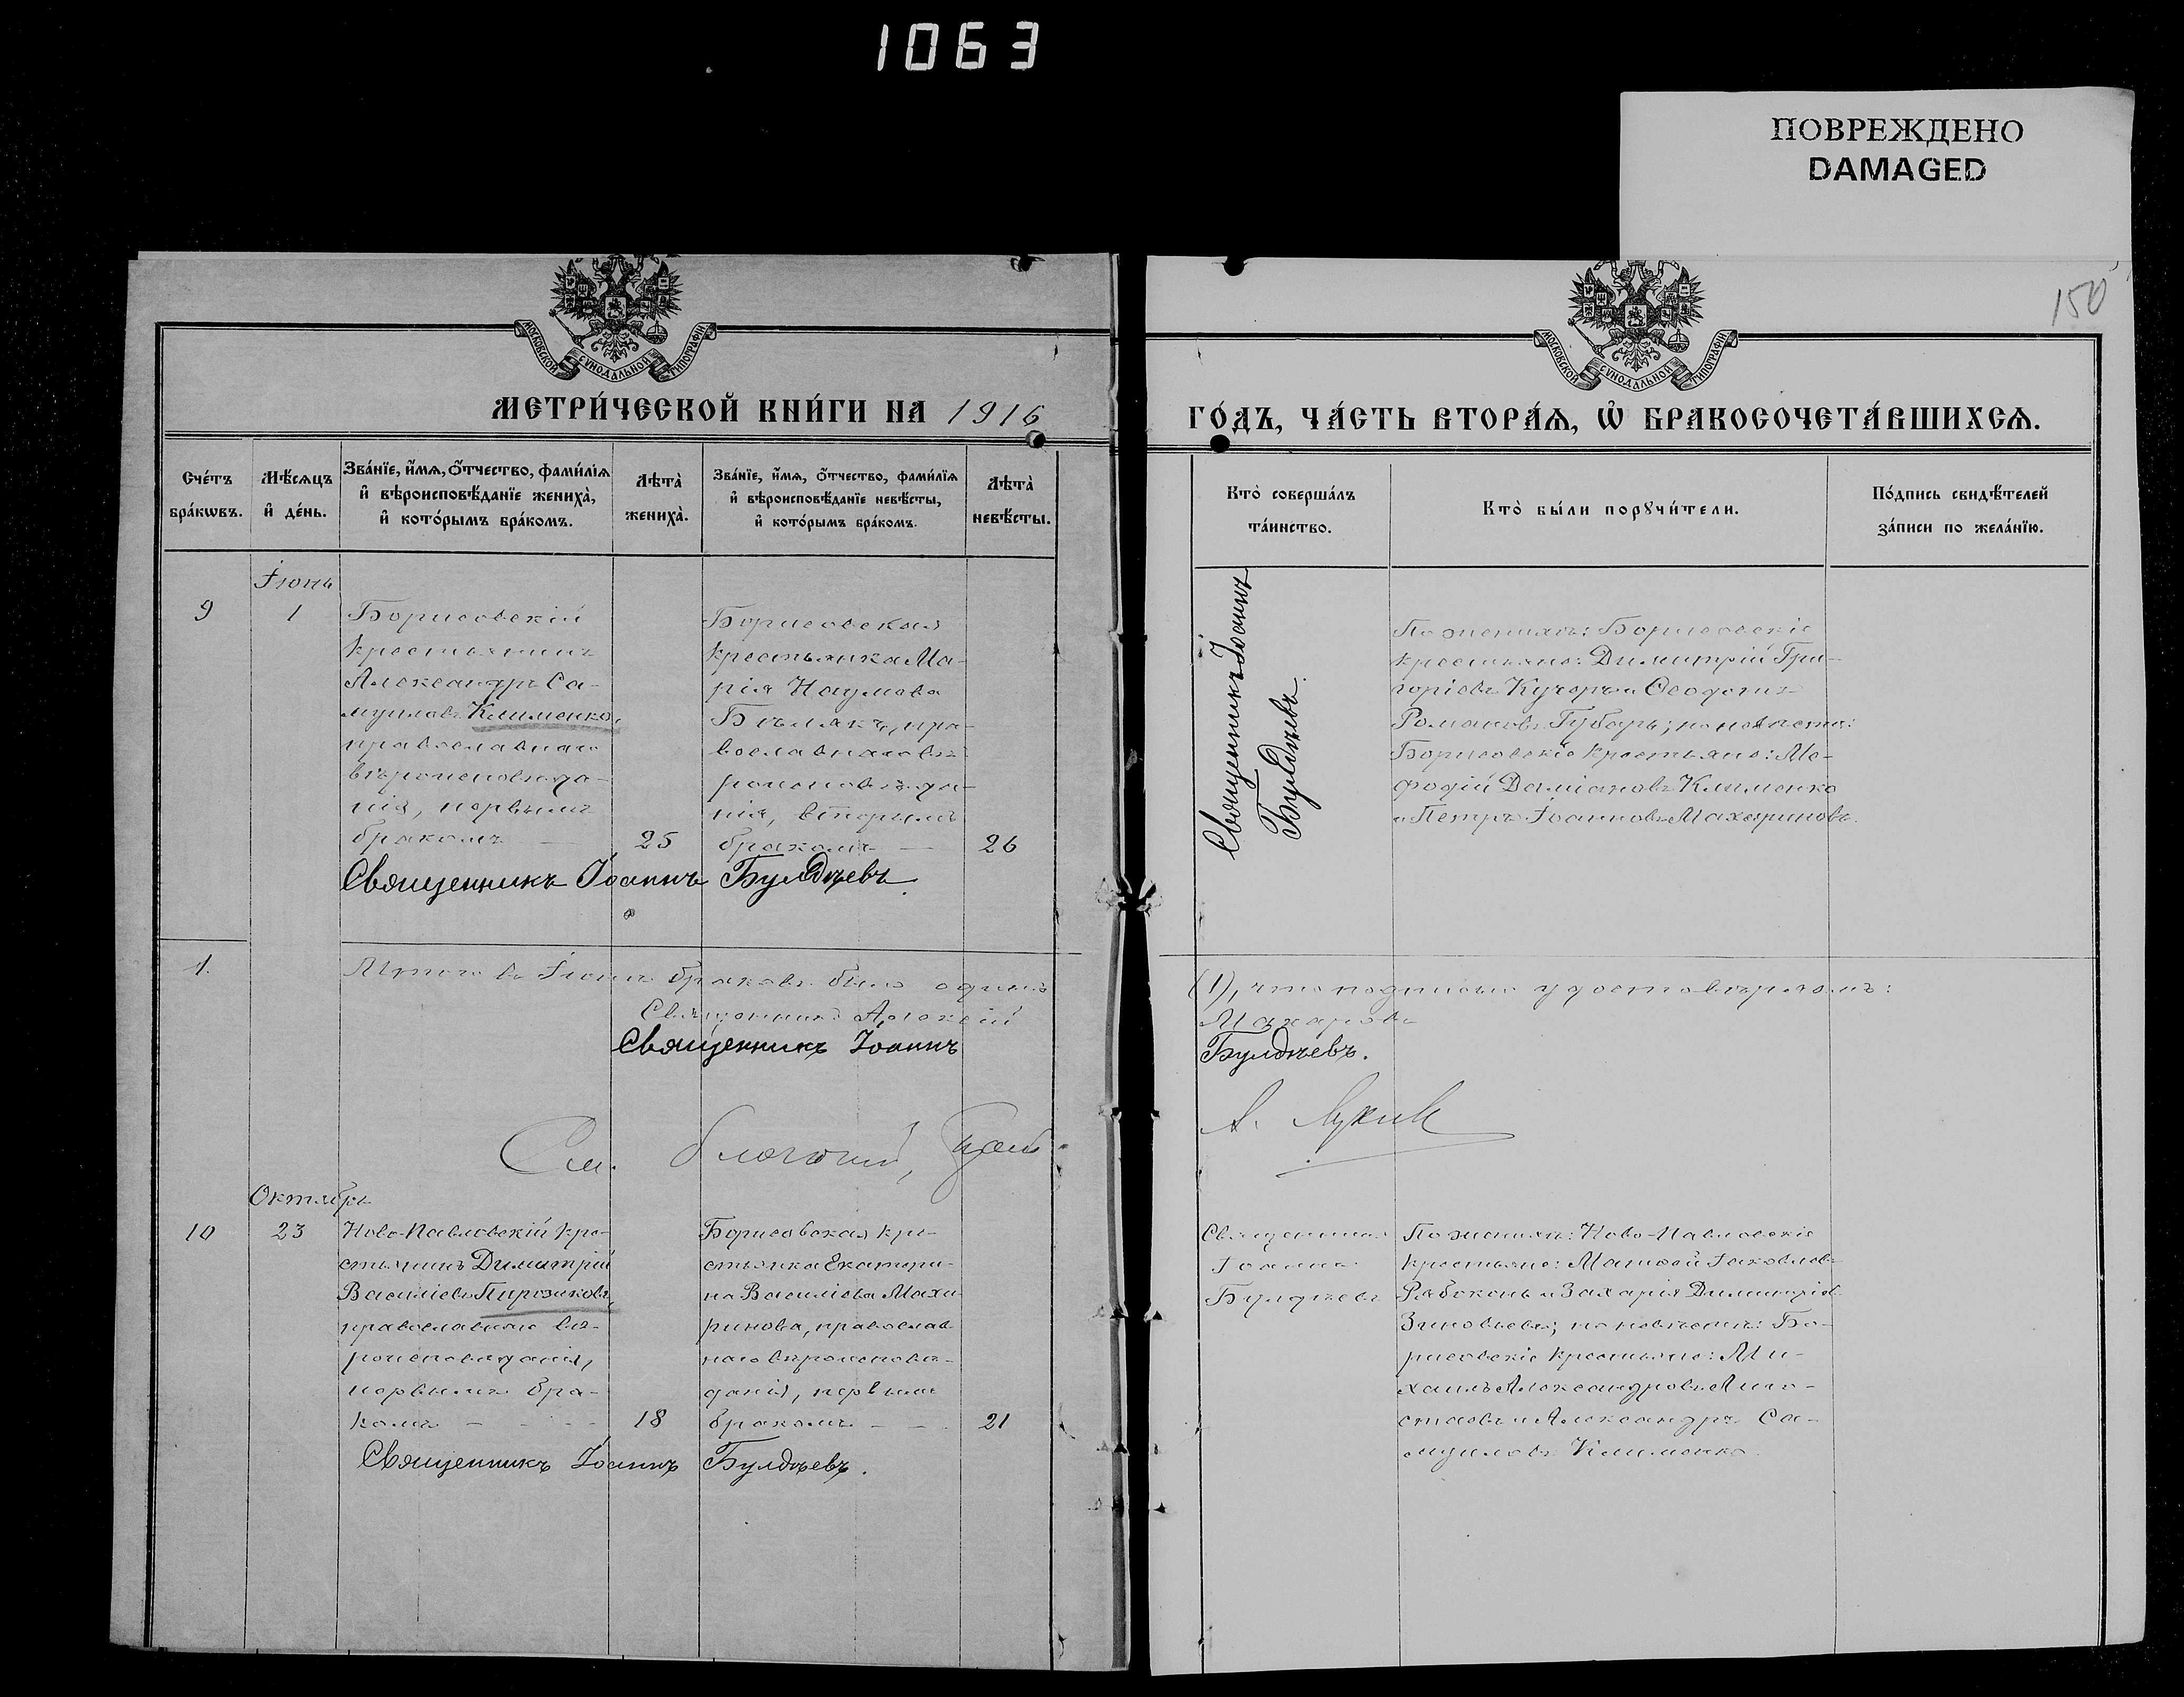 1063
ПОВРЕЖДЕНО
DAMAGED
150
МОСКОВСКОЙ СѴНОДАЛЬНОЙ ТИПОГРАФІИ
МОСКОВСКОЙ СѴНОДАЛЬНОЙ ТИПОГРАФІИ
МЕТРИ́ЧЕСКОЙ КНИ́ГИ НА 1916
ГО́ДЪ, ЧА́СТЬ ВТОРА́Ѧ, Ѿ БРАКОСОЧЕТА́ВШИХСѦ.
Сче́тъ
бра́кѡвъ.
Мѣ́сяцъ
и҆ де́нь.
Зва́нїе, и҆́мѧ, ѻ҆́тчество, фами́лїѧ
и҆ вѣроисповѣ́данїе жениха̀,
и҆ кото́рымъ бра́комъ.
Лѣта̀
жениха̀.
Зва́нїе, и҆́мѧ, ѻ҆́тчество, фами́лїѧ
и҆ вѣроисповѣ́данїе невѣ́сты,
и҆ кото́рымъ бра́комъ.
Лѣта̀
невѣ́сты.
Кто̀ соверша́лъ
та́инство.
Кто̀ бы́ли порꙋчи́тели.
По́дпись свидѣ́телей
за́писи по жела́нїю.
Іюнь
9
1
Борисовскій
крестьянинъ
Александръ Са-
муиловъ Клименко,
православнаго
вѣроисповѣда-
нія, первымъ
бракомъ —
25
Борисовская
крестьянка Ма-
рія Наумова
Бѣлякъ, пра-
вославнаго вѣ-
роисповѣда-
нія, вторымъ
бракомъ —
26
Священникъ Іоаннъ Булдѣевъ.
Священникъ Іоаннъ
Булдѣевъ.
По женихѣ: Борисовскіе
крестьяне: Димитрій Гри-
горіевъ Кучеръ и Ѳеодотъ
Романовъ Губарь; по невѣстѣ:
Борисовскіе крестьяне: Ме-
фодій Даміановъ Клименко
и Петръ Іоанновъ Махориновъ.
1.
Итого въ Іюнѣ браковъ было одинъ
(1), что подписью удостовѣряемъ:
Священникъ Алексій
Макаровъ
Священникъ Іоаннъ
Булдѣевъ.
Октябрь
10
23
Ново-Павловскій кре-
стьянинъ Димитрій
Василіевъ Пирожковъ,
православнаго вѣ-
роисповѣданія,
первымъ бра-
комъ - - - -
18
Борисовская кре-
стьянка Екатери-
на Василіева Махи-
ринова, православ-
наго вѣроисповѣ-
данія, первымъ
бракомъ — —
21
Священникъ Іоаннъ Булдѣевъ.
Священникъ
Іоаннъ
Булдѣевъ
По женихѣ: Ново-Павловскіе
крестьяне: Матѳей Іаковлевъ
Рябоконь и Захарія Димитріевъ
Зиновьевъ; по невѣстѣ: Бо-
рисовскіе крестьяне: Ми-
хаилъ Александровъ
и Александръ Са-
муиловъ Клименко.